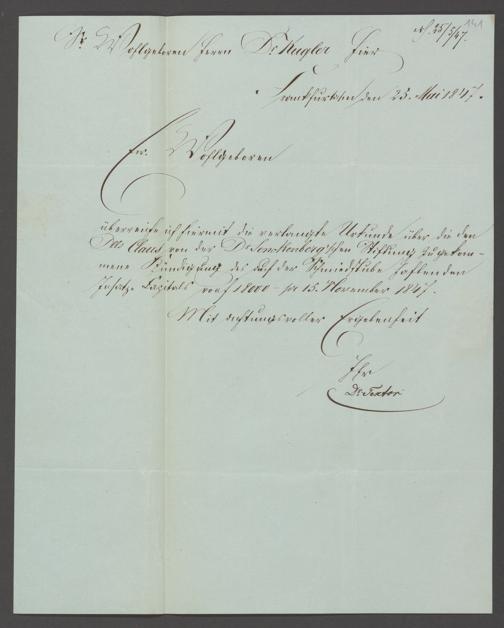 141
25/5/47.
Sr. Wohlgeboren Herrn Dr. Kugler Hier
Frankfurt den 25. Mai 1847.
Ew. Wohlgeboren
überreiche ich hiermit die verlangte Urkunde über die den
von der Dr. Senckenbergischen Stiftung zugekom-
mene Kündigung des auf der Schmidstube haftenden
Insatz-Capitals von f 18000 - pr 15. November 1847.
Mit achtungsvoller Ergebenheit
Ihr
Dr. Textor